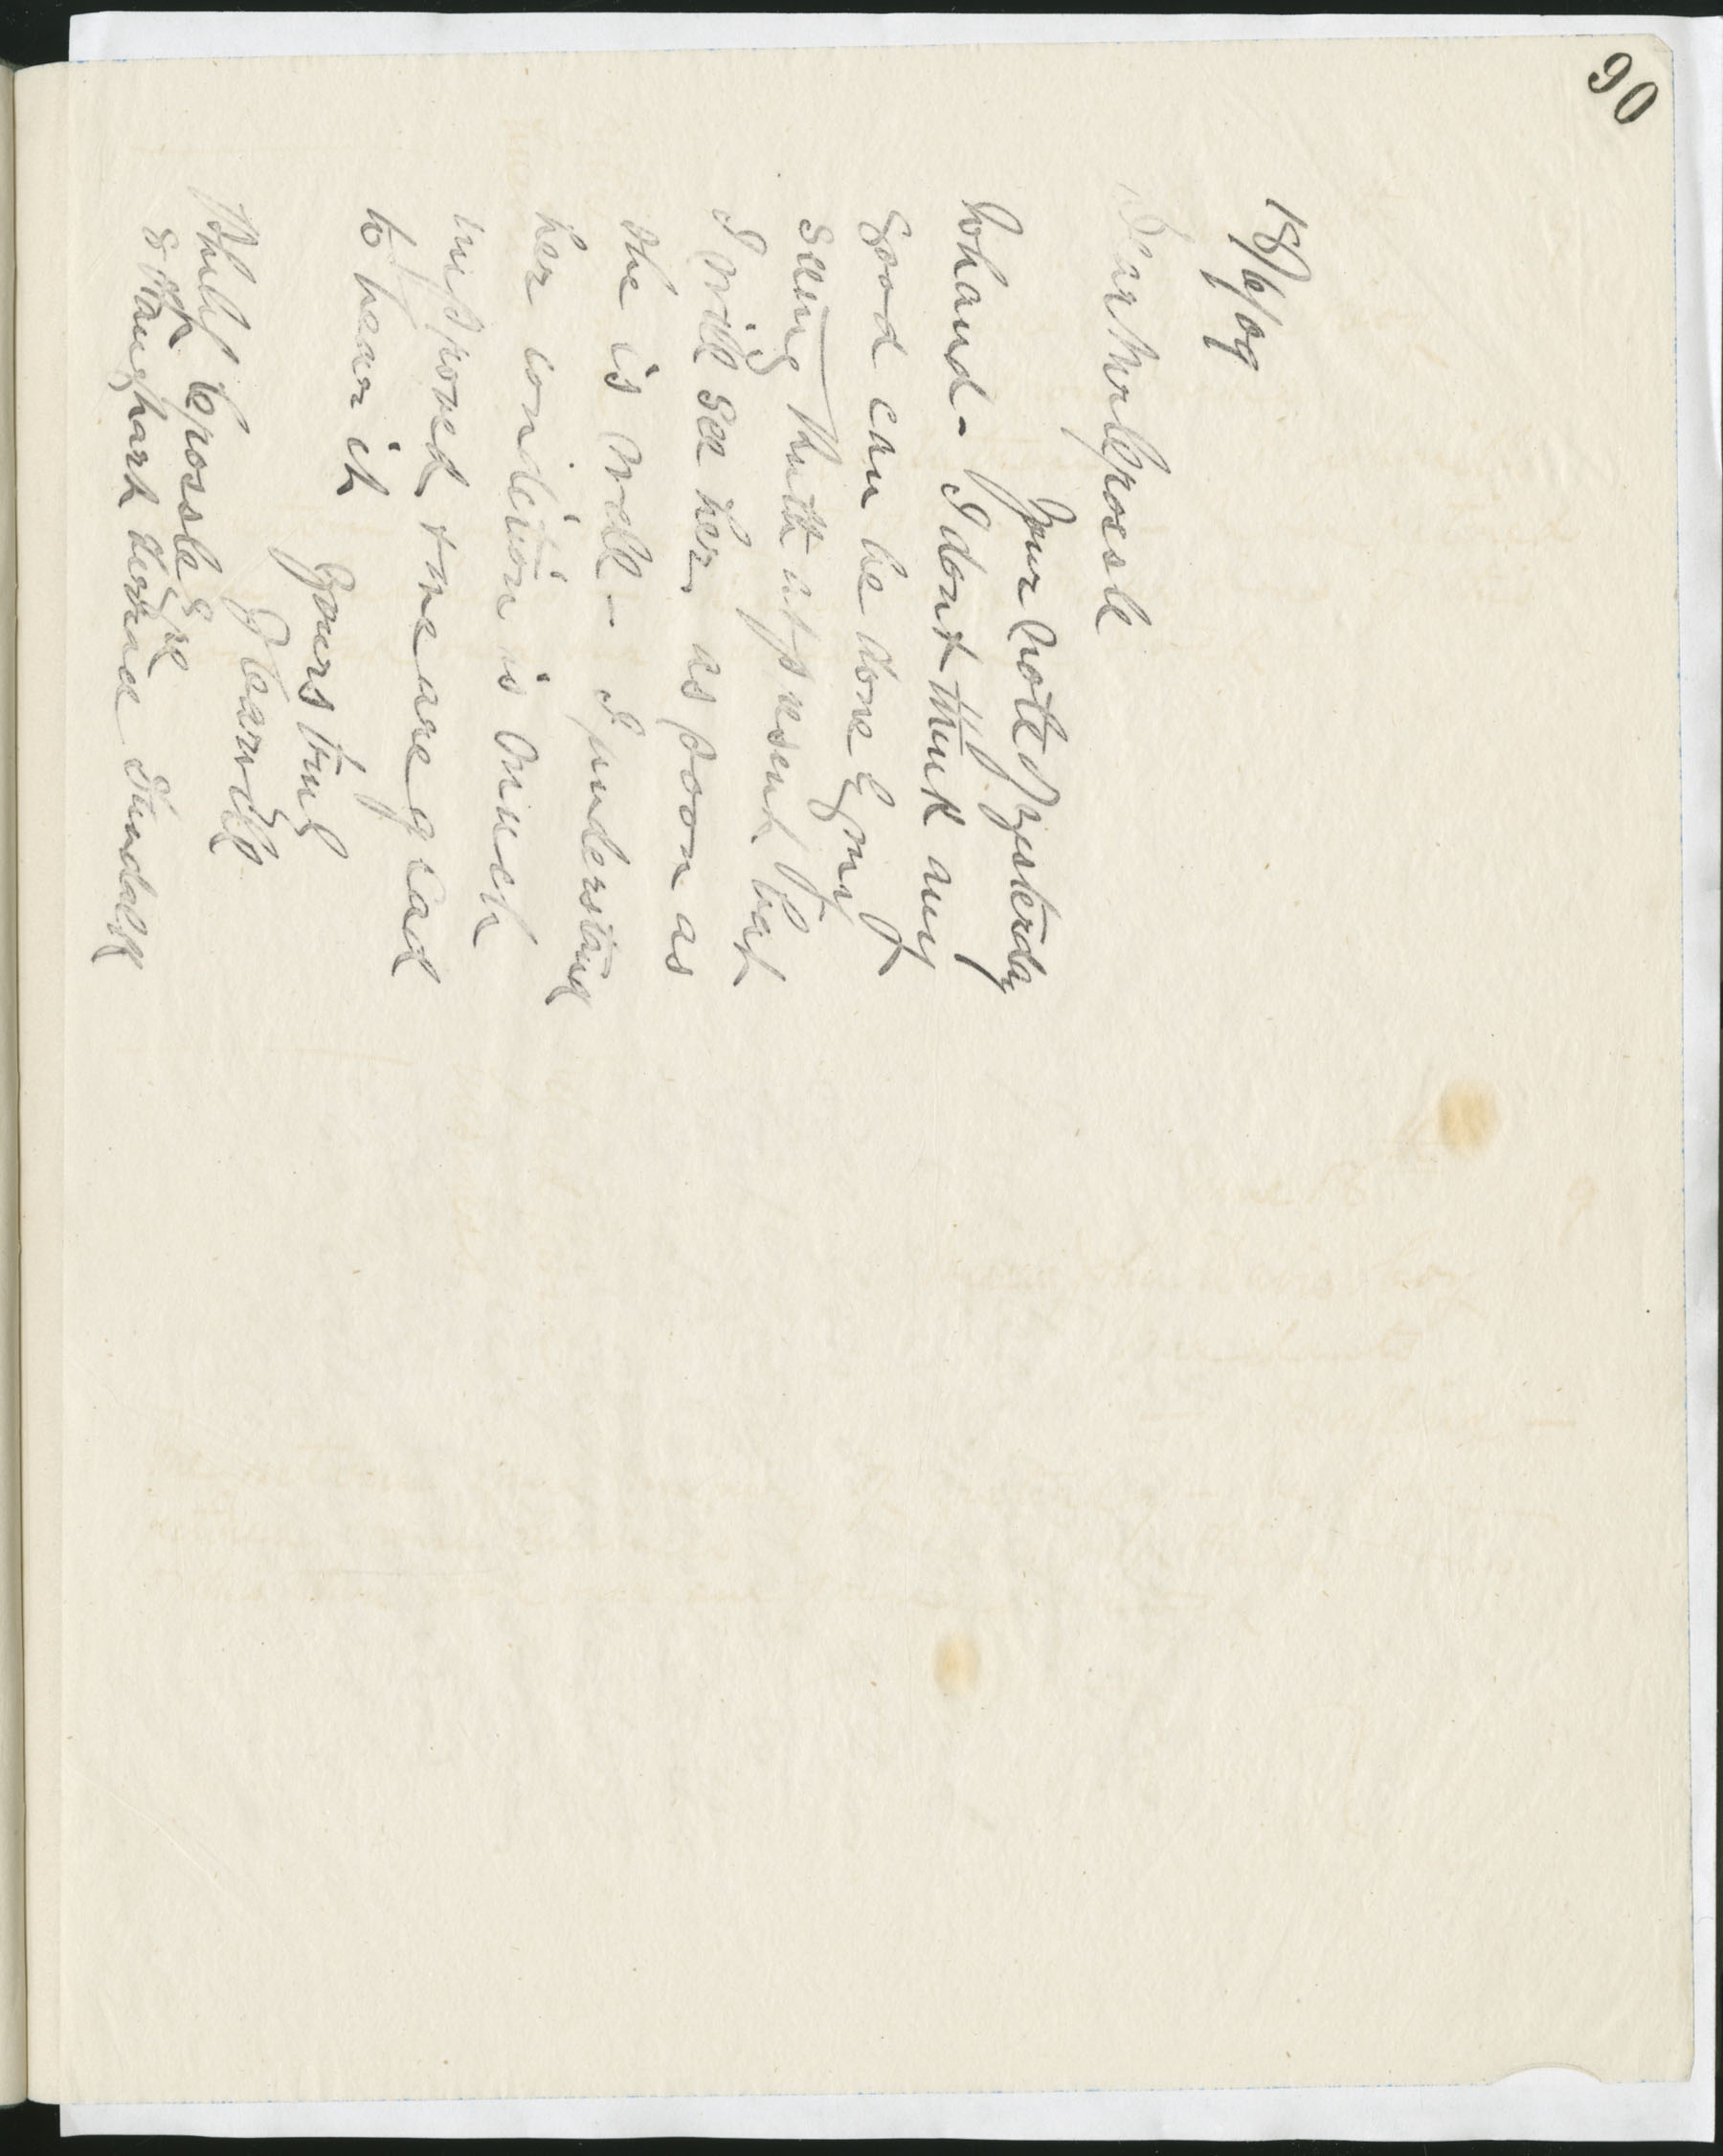 90
18/6/09
Dear Mr Epossle
Your note of yesterday
to hand - I dont think any
good can be done by my
seeing Ruth at present but
I will see her as soon as
she is well - I understand
her condition is much
improved & we are glad
to hear it
Yours truly
J Carvill
Philip Epossle Esq
Vaughark Terrace Dundalk